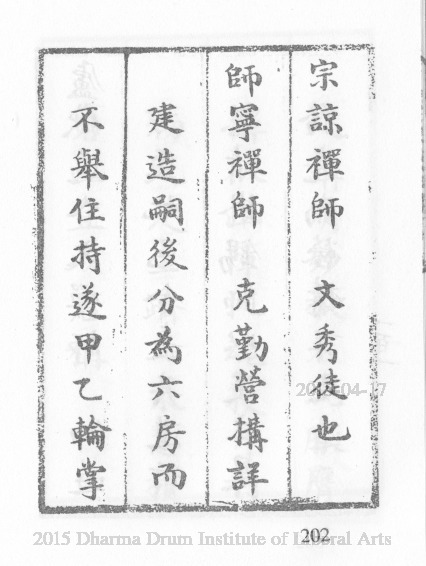 宗諒禪師 文秀徒也
師寧禪師 克勤營構詳
建造嗣後分為六房而
不舉住持遂甲乙輪掌
2015-04-17
202
2015 Dharma Drum Institute of Liberal Arts